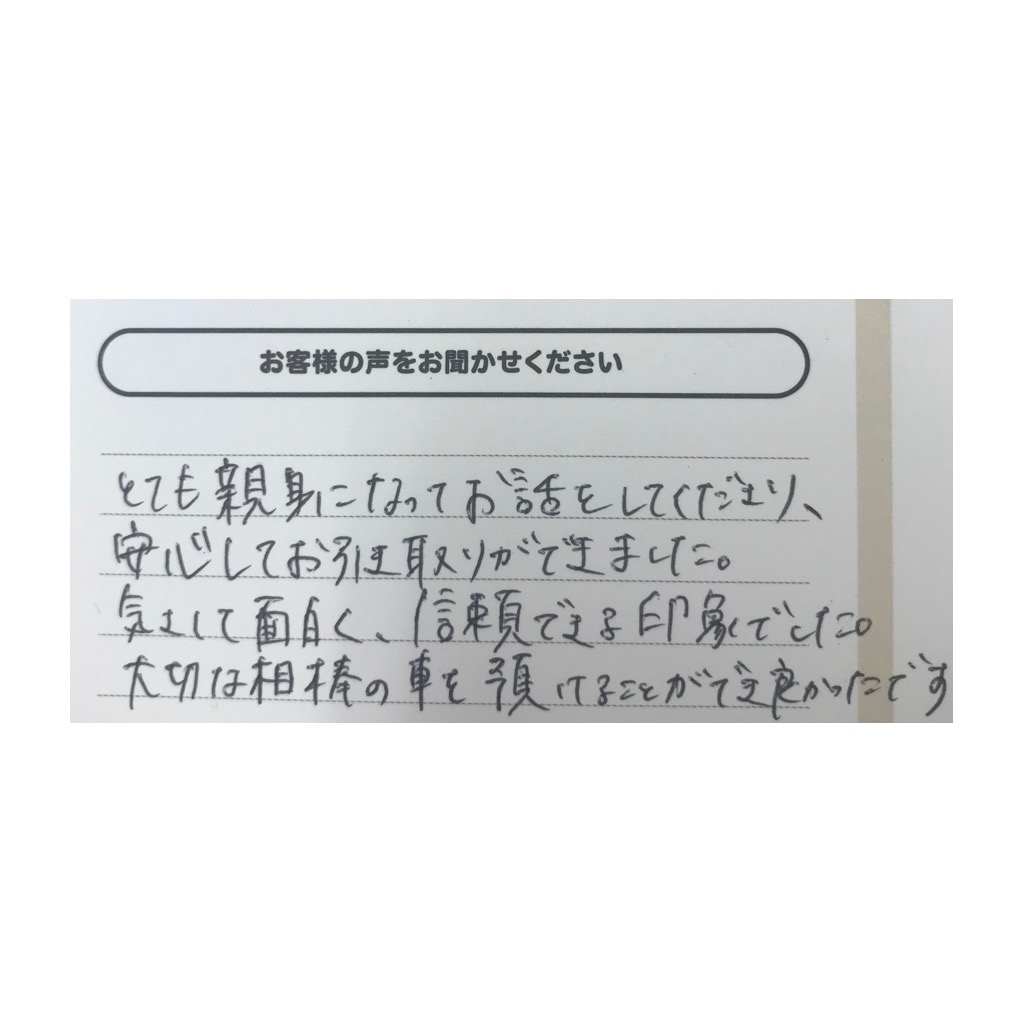 お客様の声をお聞かせください
とても親身になってお話をしてくださり、
安心してお引き取りができました。
気さくで面白く、信頼できる印象でした。
大切な相棒の車を預けることができ良かったです